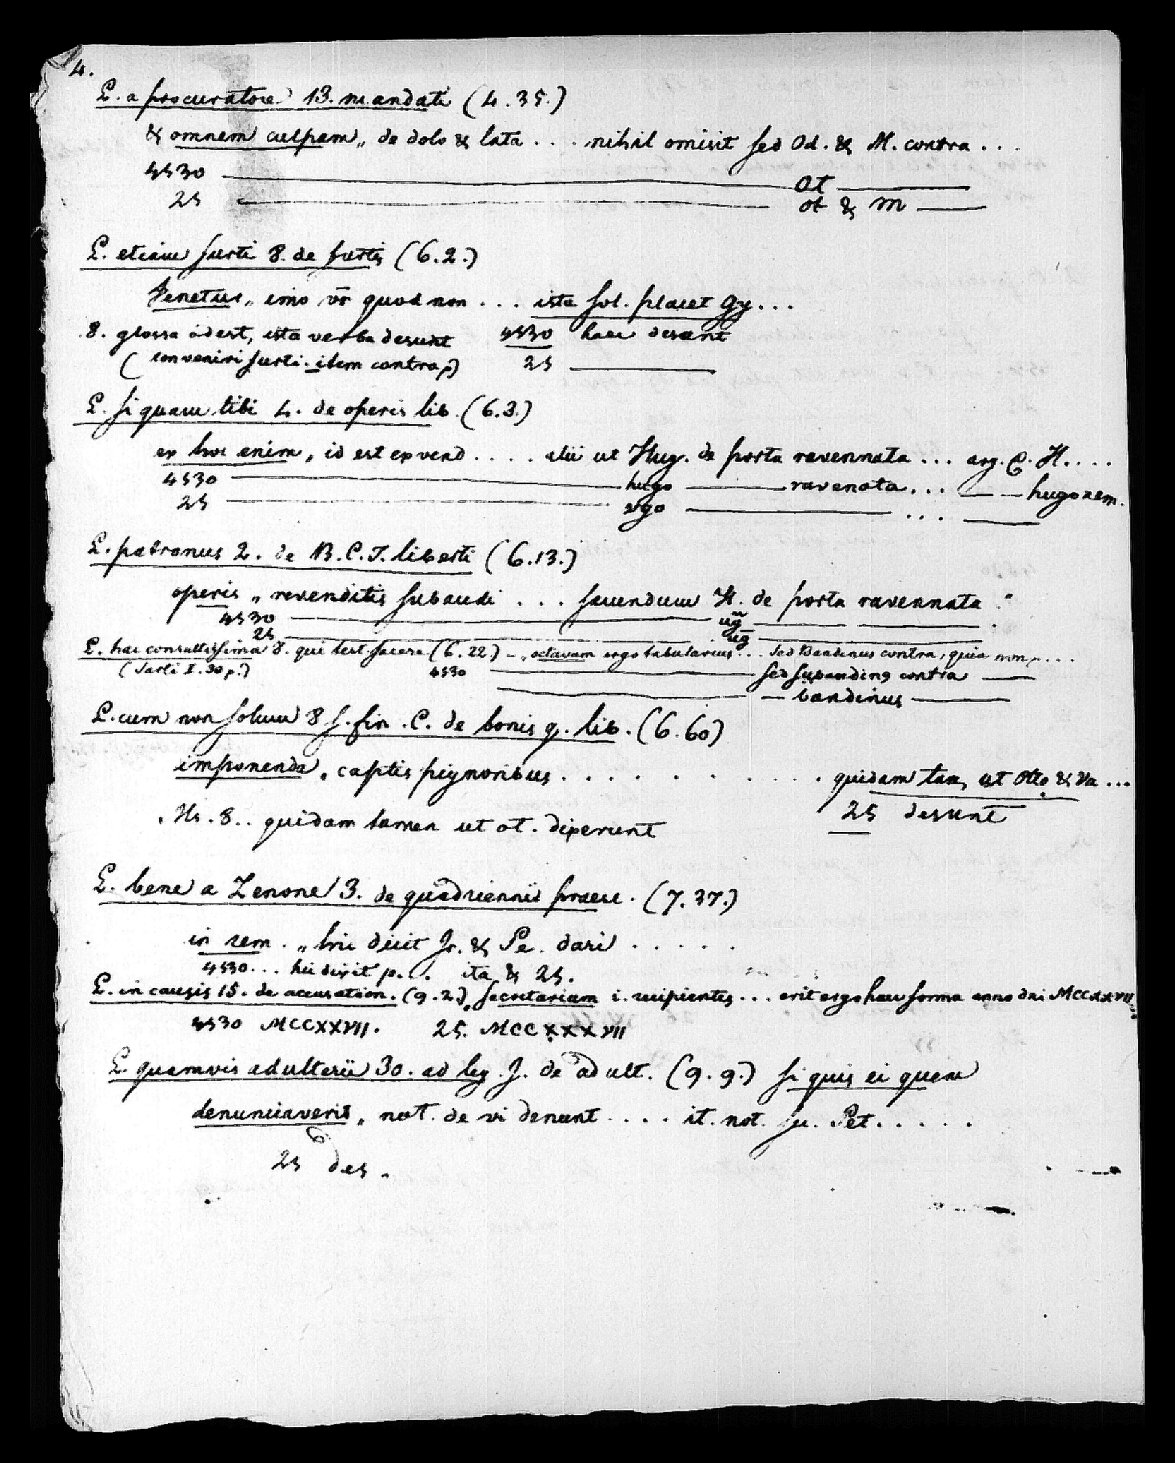 4.
L. a procuratore 13. mandati (4.35.)
& omnem culpam,, de dolo & lata . . . nihil omisit sed Od. & M. contra . . .
4530 ot
25 ot & m
L. etiam furti 8. de furtis (6.2.)
Venetus,, imo vr quod non . . . ista sol. placet gy . . .
8. glossa adest, ista verba desunt 4530 haec desunt
(conveniri furti. item contra p) 25
L. si quam tibi 4. de operis lib. (6.3.)
ex hoc enim, id est ex vend . . . . alii ut Hug. de porta ravennata . . . arg. C. H. . . .
4530 hugo ravenata . . . hugonem.
25 ugo . . .
L. patronus 2. de B. C. T. liberti (6.13.)
operis,, revenditis subaudi . . . secundum H. de porta ravennata .
4530 ug
25 ug
L. hac consultissima 8. qui test. facere (6.22.) —,, octavam ergo tabularius . . . sed Bandinus contra, quia non p . . .
(Sarti I. 30 p.) 4530 sed subandinus contra
bandinus
L. cum non solum 8 §. fin. C. de bonis q. lib. (6.60)
imponenda, captis pignoribus . . . . . . . . . . quidam tam, ut Otto & Va . . .
Hs. 8. . quidam tamen ut ot. dixerunt 25 desunt
L. bene a Zenone 3. de quadriennii praesc. (7.37.)
in rem.,, hii dicit Jo. & Pe. dari . . . . .
4530 . . . hii dixit p. . . ita & 25.
L. in causis 15. de accusation. (9.2.),, secretarium i. recipientes . . . erit ergo haec forma anno dni MCCXXVII
4530 MCCXXVII. 25. MCCXXXVII
L. quamvis adulterii 30. ad leg. J. de adult. (9.9.) si quis ei quem
denunciaverit, not. de vi denunt . . . . it. not. Pet . . . . .
25 des.